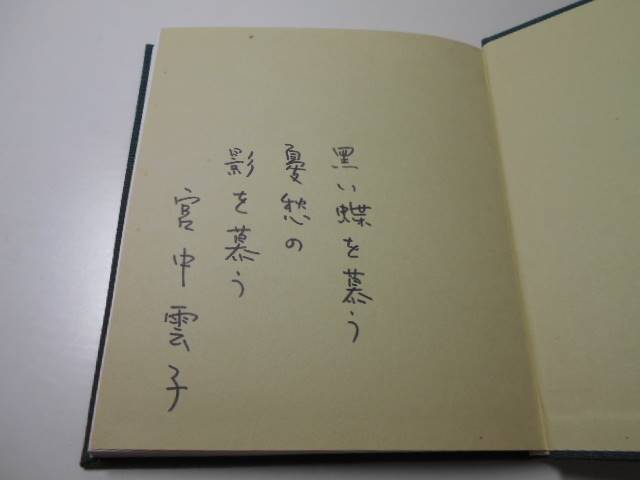 黒い蝶を慕う
憂愁の
影を慕う
宮中雲子